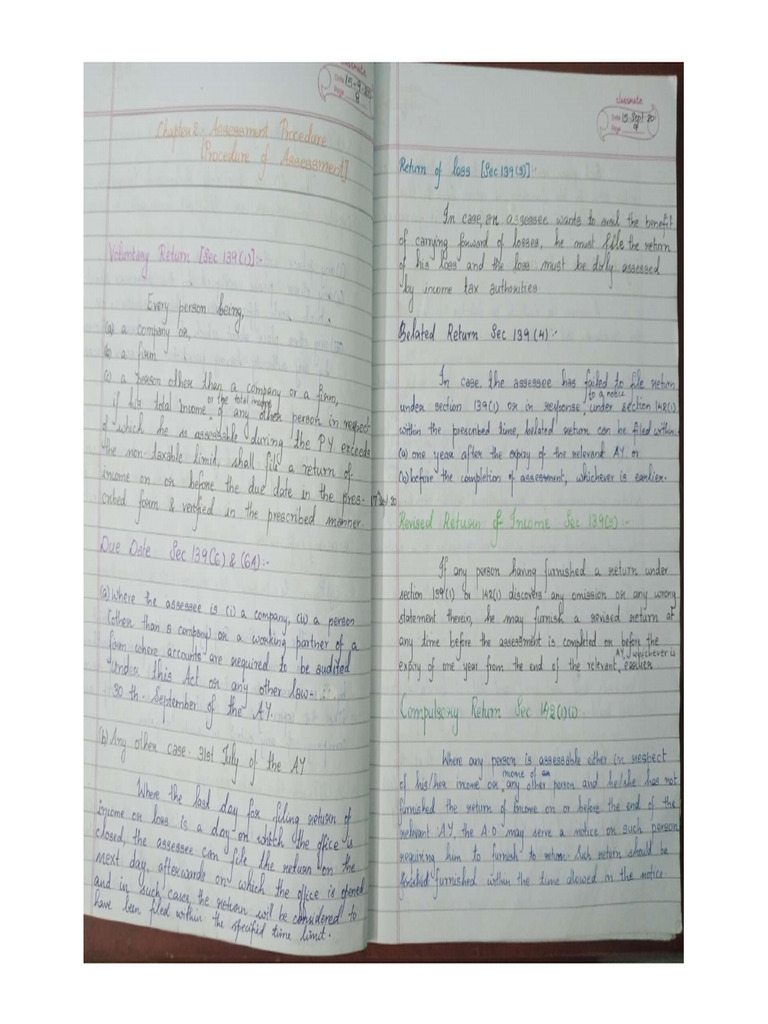 classmate
Date 15-9-20
Page 8
Chapter 2. Assessment Procedure
[Procedure of Assessment]
Voluntary Return [Sec 139(1)]:-
Every person being,
(a) a company or,
(b) a firm
(c) a person other than a company or a firm,
if his total income or the total income of any other person in respect
of which he is assessable during the PY exceeds
the non-taxable limit, shall file a return of
income on or before the due date in the pres-
cribed form & verified in the prescribed manner.
Due Date Sec 139(6) & (6A):-
(a) Where the assessee is (i) a company, (ii) a person
(other than a company) or a working partner of a
firm where accounts are required to be audited
under this Act or any other law-
30 th. September of the AY.
(b) Any other case- 31st July of the AY
Where the last day for filing return of
income or loss is a day on which the office is
closed, the assessee can file the return on the
next day afterwards on which the office is opened
and in such cases the return will be considered to
have been filed within the specified time limit.
classmate
Date 15.Sept.20
Page 9
Return of loss [Sec 139(3)]:-
In case, an assessee wants to avail the benefit
of carrying forward of losses, he must file the return
of his loss and the loss must be duly assessed
by income tax authorities
Belated Return Sec 139 (4):-
In case, the assessee has failed to file return
under section 139(1) or in response, to a notice under section 142(1)
within the prescribed time, belated return can be filed within:
(a) one year after the expiry of the relevant AY or
(b) before the completion of assessment, whichever is earlier.
Revised Return of Income Sec 139(5):-
If any person having furnished a return under
section 139(1) or 142(1) discovers any omission or any wrong
statement therein, he may furnish a revised return at
any time before the assessment is completed or before the
expiry of one year from the end of the relevant AY, whichever is earlier
Compulsory Return Sec 142(1)(i)
Where any person is assessable either in respect
of his/her income or, income of any other person and he/she has not
furnished the return of income on or before the end of the
relevant AY, the A.O may serve a notice on such person
requiring him to furnish to return. Such return should be
furnished within the time allowed in the notice